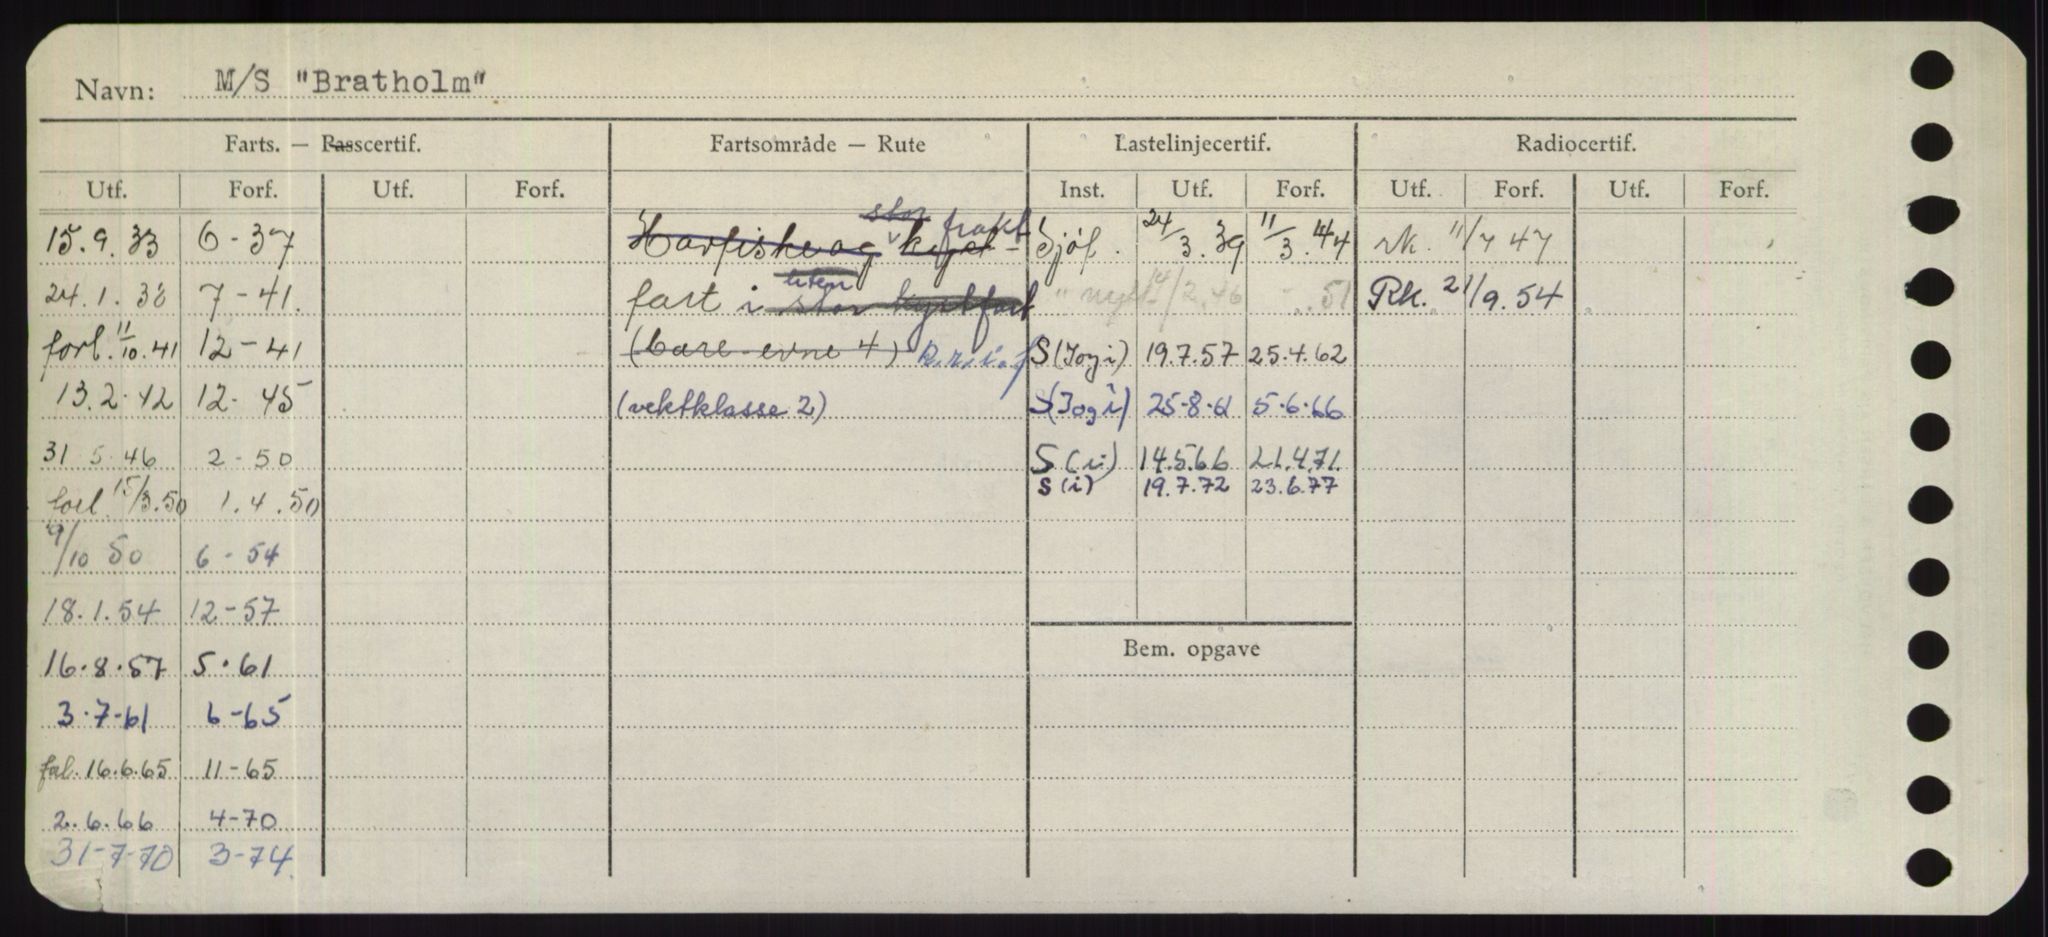 Navn: M/S "Bratholm"
Farts. — Passcertif. Fartsområde — Rute Lastelinjecertif. Radiocertif.
Utf. Forf. Utf. Forf. Inst. Utf. Forf. Utf. Forf. Utf. Forf.
stor frakt
15.9.33 6-37 Havfiske og kyst- Sjöf. 24/3.39 11/3.44 rk. 11/7 47
liten
24.1.38 7-41. fart i stor kystfart " nytt 14/2.46 - .51 Rk. 21/9.54
forl. 11/10.41 12-41 (bare evne 4) S (Jog i) 19.7.57 25.4.62
13.2.42 12-45 (vektklasse 2) S (Jog i) 25-8-61 5-6-66
31 5 46 2-50 S (i) 14.5.66 21.4.71.
forl. 15/3.50 1.4.50 S (i) 19.7.72 23.6.77
9/10 50 6-54
18.1.54 12-57
16.8.57 5.61 Bem. opgave
3.7-61 6-65
fal. 16.6.65 11-65
2.6.66 4-70
31-7-70 3-74.